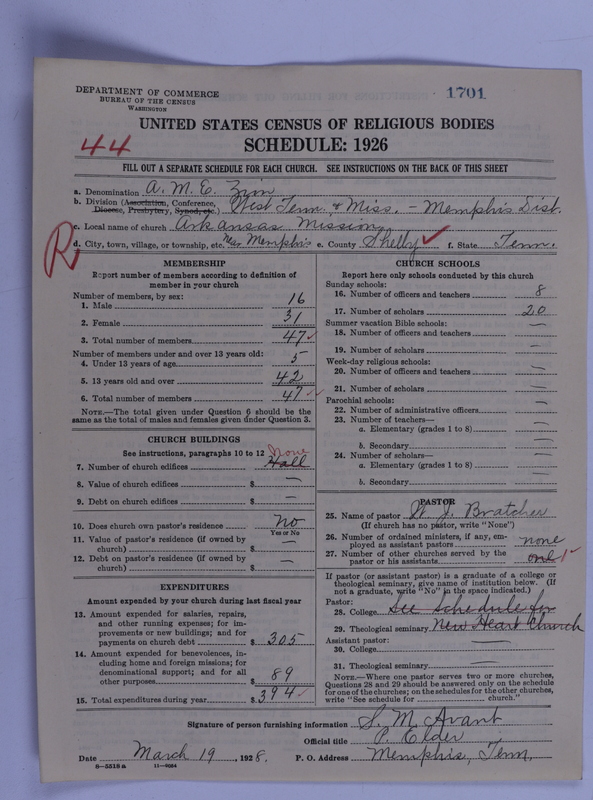 1701
DEPARTMENT OF COMMERCE
BUREAU OF THE CENSUS
WASHINGTON
UNITED STATES CENSUS OF RELIGIOUS BODIES
44
SCHEDULE: 1926
FILL OUT A SEPARATE SCHEDULE FOR EACH CHURCH. SEE INSTRUCTIONS ON THE BACK OF THIS SHEET
a. Denomination A. M. E. Zion
b. Division (Association, Conference, Diocese, Presbytery, Synod, etc.) West Tenn. & Miss. - Memphis Dist.
c. Local name of church Arkansas Mission
R
d. City, town, village, or township, etc. Near Memphis e. County Shelby ✓ f. State Tenn.
MEMBERSHIP
Report number of members according to definition of
member in your church
Number of members, by sex:
1. Male 16
2. Female 31
3. Total number of members 47 ✓
Number of members under and over 13 years old:
4. Under 13 years of age 5
5. 13 years old and over 42
6. Total number of members 47 ✓
NOTE.—The total given under Question 6 should be the
same as the total of males and females given under Question 3.
CHURCH BUILDINGS
See instructions, paragraphs 10 to 12
None
7. Number of church edifices Hall
8. Value of church edifices $ —
9. Debt on church edifices $ —
10. Does church own pastor's residence No
Yes or No
11. Value of pastor's residence (if owned by
church) $ —
12. Debt on pastor's residence (if owned by
church) $ —
EXPENDITURES
Amount expended by your church during last fiscal year
13. Amount expended for salaries, repairs,
and other running expenses; for im-
provements or new buildings; and for
payments on church debt $ 305
14. Amount expended for benevolences, in-
cluding home and foreign missions; for
denominational support; and for all
other purposes $ 89
15. Total expenditures during year $ 394 ✓
CHURCH SCHOOLS
Report here only schools conducted by this church
Sunday schools:
16. Number of officers and teachers 8
17. Number of scholars 20
Summer vacation Bible schools:
18. Number of officers and teachers —
19. Number of scholars —
Week-day religious schools:
20. Number of officers and teachers —
21. Number of scholars —
Parochial schools:
22. Number of administrative officers —
23. Number of teachers—
a. Elementary (grades 1 to 8) —
b. Secondary —
24. Number of scholars—
a. Elementary (grades 1 to 8) —
b. Secondary —
PASTOR
25. Name of pastor W. J. Bratcher
(If church has no pastor, write "None")
26. Number of ordained ministers, if any, em-
ployed as assistant pastors none
27. Number of other churches served by the
pastor or his assistants one 1 ✓
If pastor (or assistant pastor) is a graduate of a college or
theological seminary, give name of institution below. (If
not a graduate, write "No" in the space indicated.)
Pastor:
28. College See Schedule for
29. Theological seminary New Heart Church
Assistant pastor:
30. College —
31. Theological seminary —
NOTE.—Where one pastor serves two or more churches,
Questions 28 and 29 should be answered only on the schedule
for one of the churches; on the schedules for the other churches,
write "See schedule for church."
Signature of person furnishing information S. M. Avant
Official title P. Elder
Date March 19, 1928. P. O. Address Memphis, Tenn.
8—5518a 11—9084